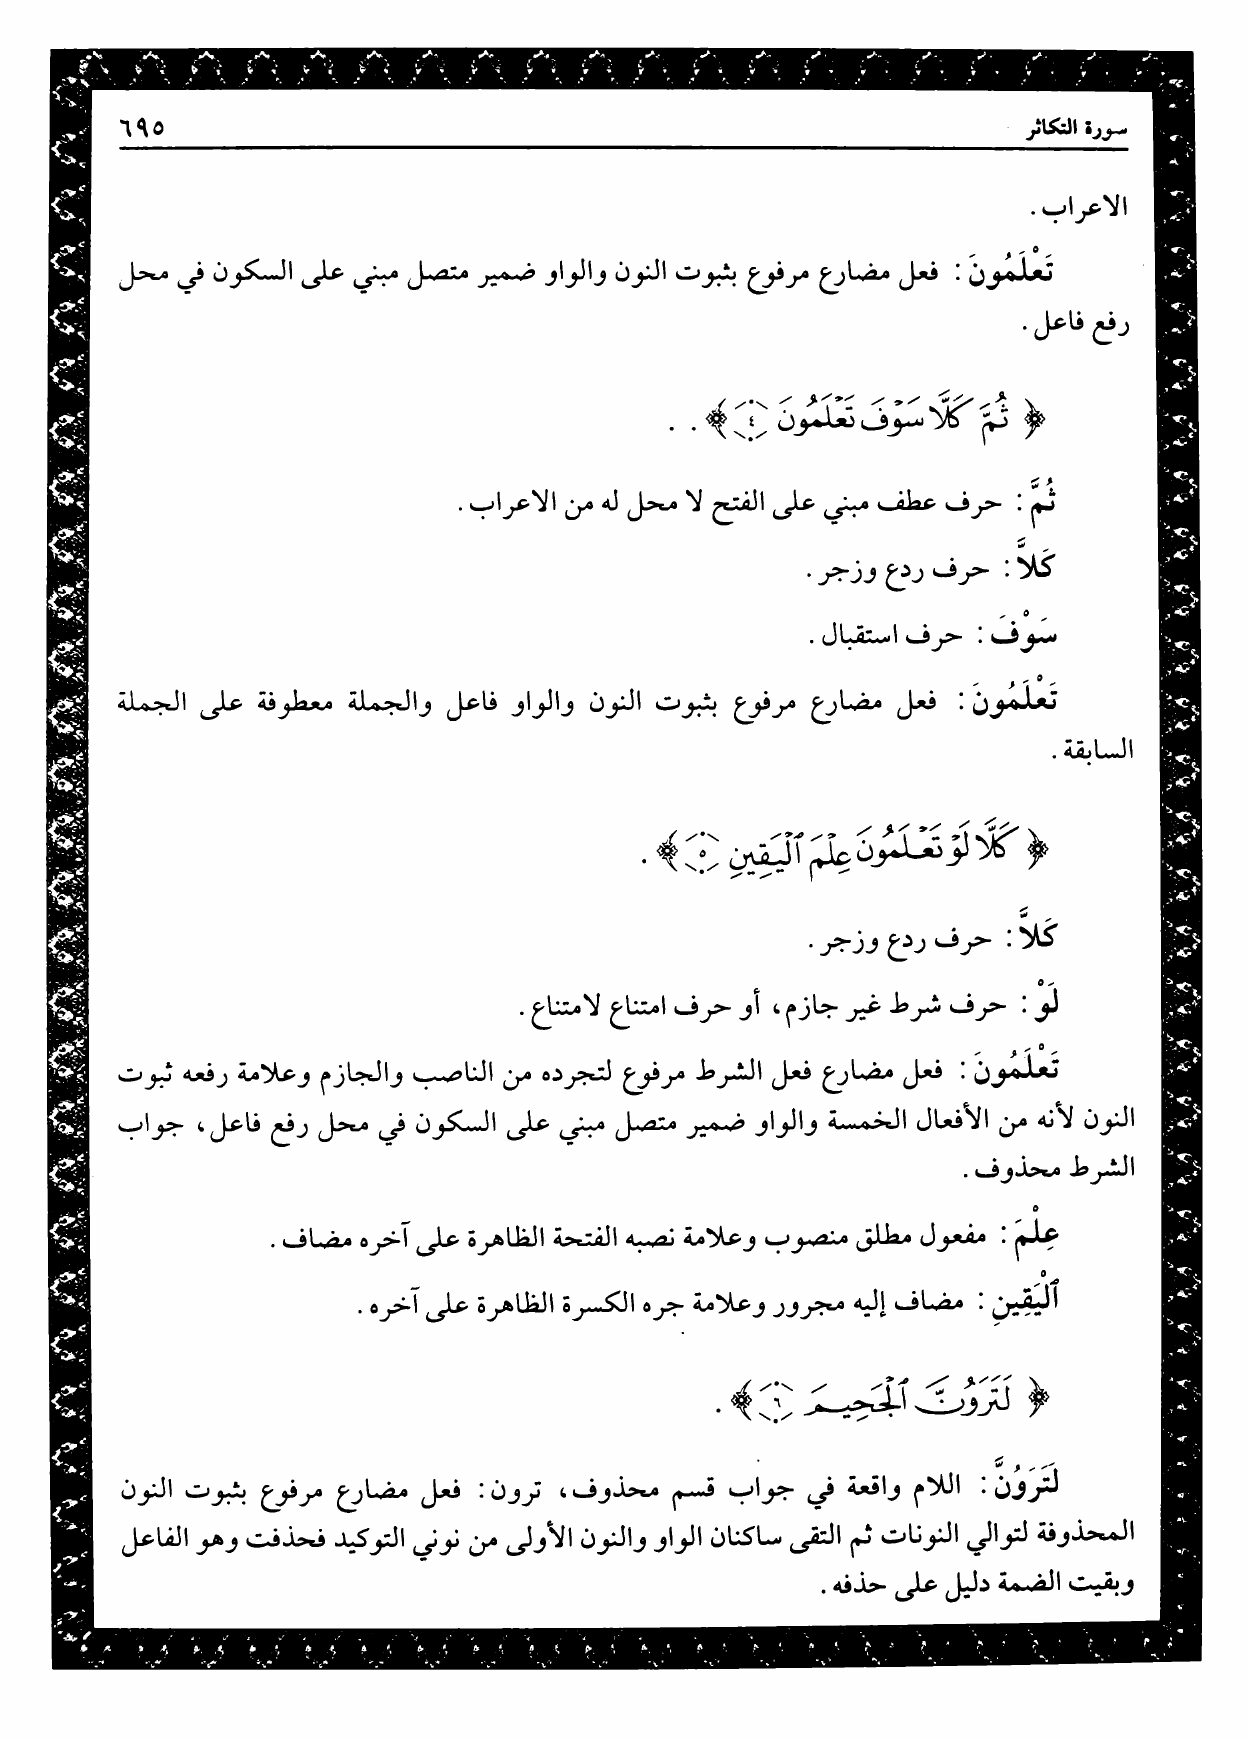 سورة التكاثر ٦٩٥
الاعراب.
تَعْلَمُونَ: فعل مضارع مرفوع بثبوت النون والواو ضمير متصل مبني على السكون في محل
رفع فاعل.
﴿ ثُمَّ كَلَّا سَوْفَ تَعْلَمُونَ ٤ ﴾ . .
ثُمَّ: حرف عطف مبني على الفتح لا محل له من الاعراب.
كَلاَّ: حرف ردع وزجر.
سَوْفَ: حرف استقبال.
تَعْلَمُونَ: فعل مضارع مرفوع بثبوت النون والواو فاعل والجملة معطوفة على الجملة
السابقة.
﴿ كَلَّا لَوْ تَعْلَمُونَ عِلْمَ ٱلْيَقِينِ ٥ ﴾ .
كَلاَّ: حرف ردع وزجر.
لَوْ: حرف شرط غير جازم، أو حرف امتناع لامتناع.
تَعْلَمُونَ: فعل مضارع فعل الشرط مرفوع لتجرده من الناصب والجازم وعلامة رفعه ثبوت
النون لأنه من الأفعال الخمسة والواو ضمير متصل مبني على السكون في محل رفع فاعل، جواب
الشرط محذوف.
عِلْمَ: مفعول مطلق منصوب وعلامة نصبه الفتحة الظاهرة على آخره مضاف.
ٱلْيَقِينِ: مضاف إليه مجرور وعلامة جره الكسرة الظاهرة على آخره.
﴿ لَتَرَوُنَّ ٱلْجَحِيمَ ٦ ﴾ .
لَتَرَوُنَّ: اللام واقعة في جواب قسم محذوف، ترون: فعل مضارع مرفوع بثبوت النون
المحذوفة لتوالي النونات ثم التقى ساكنان الواو والنون الأولى من نوني التوكيد فحذفت وهو الفاعل
وبقيت الضمة دليل على حذفه.